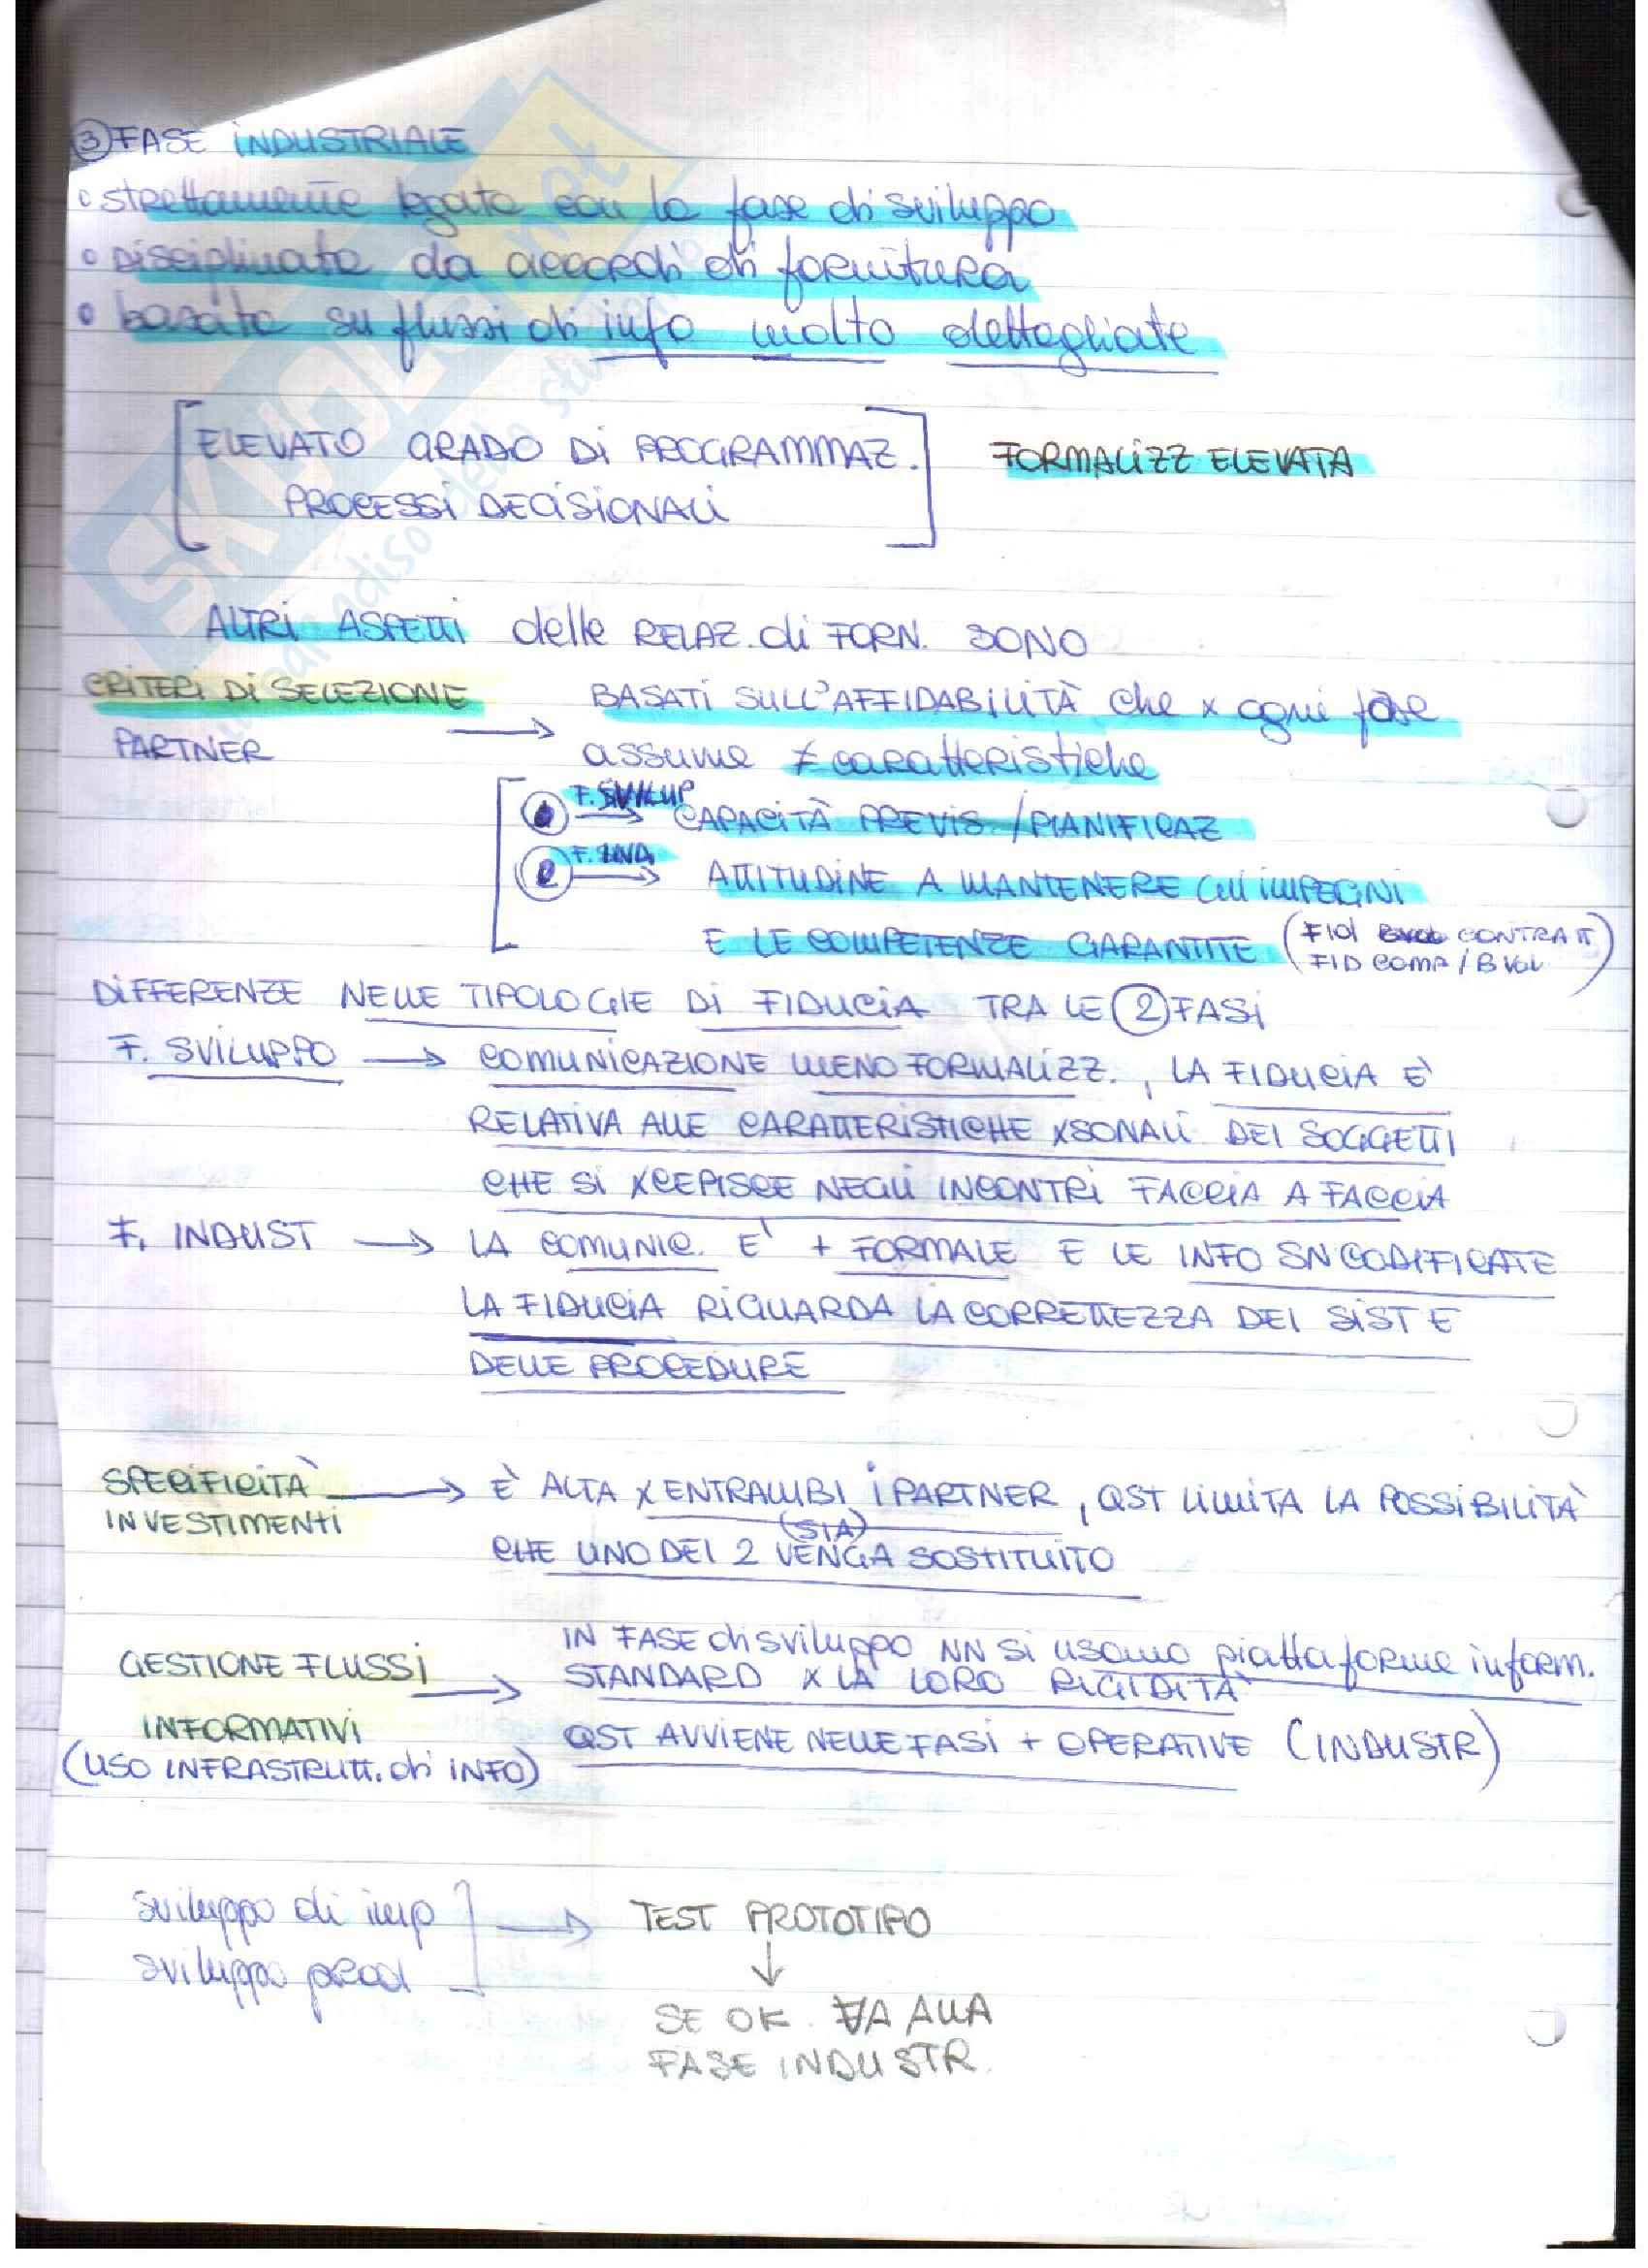 ③ FASE INDUSTRIALE
• strettamente legata con la fase di sviluppo
• Disciplinata da accordi di fornitura
• basata su flussi di info molto dettagliate
[ELEVATO GRADO DI PROGRAMMAZ. PROCESSI DECISIONALI]
FORMALIZZ ELEVATA
ALTRI ASPETTI delle RELAZ. di FORN. SONO
CRITERI DI SELEZIONE PARTNER → BASATI SULL'AFFIDABILITÀ che x ogni fase
assume ≠ caratteristiche
F. SVILUP → CAPACITÀ PREVIS./PIANIFICAZ
② F. IND. → ATTITUDINE A MANTENERE GLI IMPEGNI
E LE COMPETENZE GARANTITE (FID CONTRATT
FID COMP / B VOL)
DIFFERENZE NELLE TIPOLOGIE DI FIDUCIA TRA LE ② FASI
F. SVILUPPO → COMUNICAZIONE MENO FORMALIZZ., LA FIDUCIA È
RELATIVA ALLE CARATTERISTICHE XSONALI DEI SOGGETTI
CHE SI XCEPISCE NEGLI INCONTRI FACCIA A FACCIA
F. INDUST → LA COMUNIC. E' + FORMALE E LE INFO SN CODIFICATE
LA FIDUCIA RIGUARDA LA CORRETTEZZA DEI SIST E
DELLE PROCEDURE
SPECIFICITÀ INVESTIMENTI → È ALTA X ENTRAMBI I PARTNER, QST LIMITA LA POSSIBILITÀ
(SIA)
CHE UNO DEI 2 VENGA SOSTITUITO
GESTIONE FLUSSI INFORMATIVI → IN FASE di sviluppo NN SI usano piattaforme inform.
STANDARD X LA LORO RIGIDITÀ
QST AVVIENE NELLE FASI + OPERATIVE (INDUSTR)
(USO INFRASTRUTT. di INFO)
sviluppo di imp
sviluppo prod
→ TEST PROTOTIPO
↓
SE OK VA ALLA
FASE INDUSTR.
SKUOLA.net
il paradiso dello studente